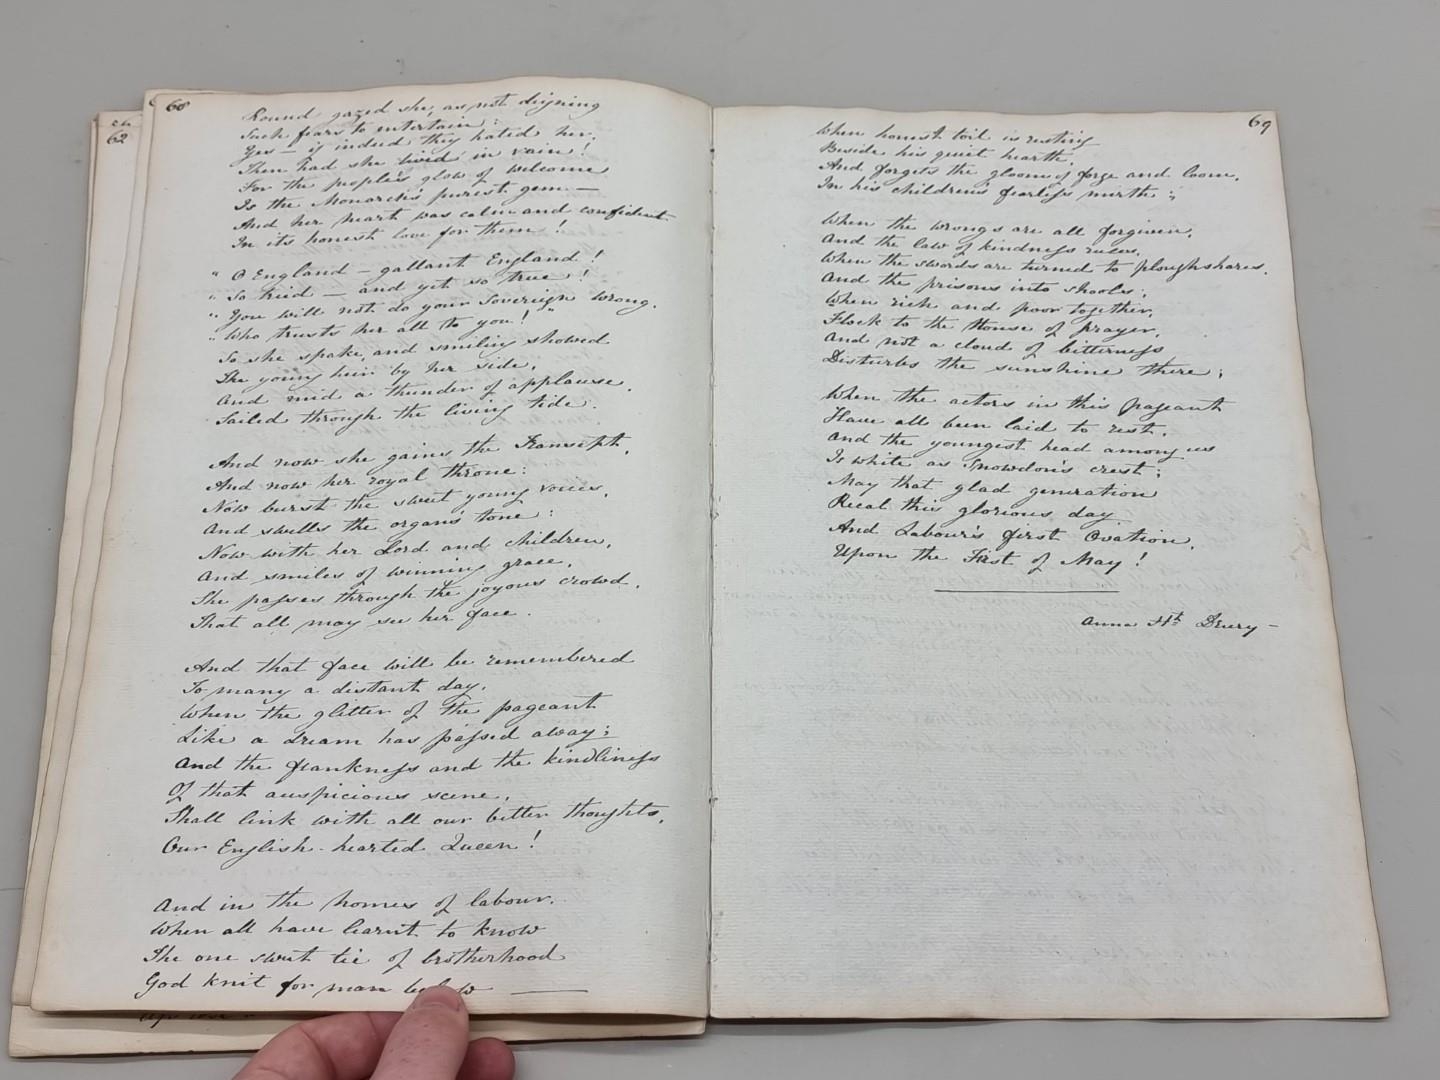 68
Round gazed she, as not deigning
Such fears to entertain:
Yes — if indeed they hated her,
Then had she lived in vain!
For the people's glow of welcome
Is the Monarch's purest gem —
And her heart was calm and confident
In its honest love for them!
" O England — gallant England!
" So tried — and yet so true!
" You will not do your Sovereign wrong,
" Who trusts her all to you! "
So she spake, and smiling showed
The young heir by her side,
And mid a thunder of applause,
Sailed through the living tide.
And now she gains the Transept,
And now her royal throne:
Now burst the sweet young voices,
And swells the organ's tone:
Now with her Lord and children,
And smiles of winning grace,
She passes through the joyous crowd,
That all may see her face.
And that face will be remembered
To many a distant day,
When the glitter of the pageant
Like a dream has passed away;
And the frankness and the kindliness
Of that auspicious scene,
Shall link with all our better thoughts,
Our English-hearted Queen!
And in the homes of labour,
When all have learnt to know
The one sweet tie of brotherhood
God knit for man below —
62
69
When honest toil is resting
Beside his quiet hearth,
And forgets the gloom of forge and loom,
In his children's fearless mirth;
When the wrongs are all forgiven,
And the law of kindness rules,
When the swords are turned to ploughshares,
And the prisons into schools;
When rich and poor together,
Flock to the House of prayer,
And not a cloud of bitterness
Disturbs the sunshine there;
When the actors in this pageant
Have all been laid to rest,
And the youngest head among us
Is white as Snowdon's crest;
May that glad generation
Recal this glorious day
And Labour's first Ovation,
Upon the First of May!
Anna Ht Drury —